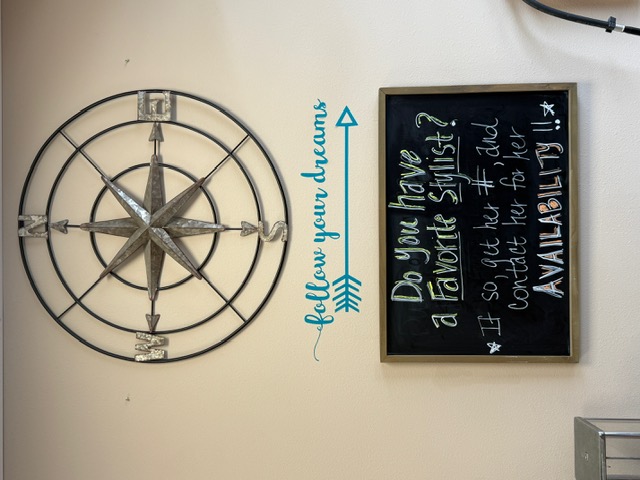 N
W E
S
follow your dreams
Do you have
a Favorite Stylist?
If so, get her #, and
contact her for her
AVAILABILITY!!